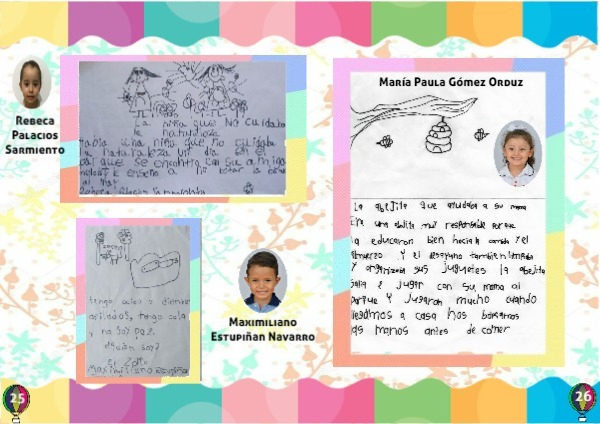 Rebeca
Palacios
Sarmiento
La niña que No cuidaba
la naturaleza
había una niña que no cuidaba
la naturaleza un día en el
que se encontró con su amiga
le enseña a no botar la
María Paula Gómez Orduz
La abejita que ayudaba a su mama
Era una abejita muy responsable porque
la educaron bien hacia la comida y el
almuerzo y el desayuno tambien limpiaba
Y organizaba sus juguetes la abejita
salia a jugar con su mama al
parque Y Jugaron mucho cuando
llegamos a casa nos lavamos
las manos antes de comer
tengo ojos y dientes
afilados, tengo cola
y no soy pez.
¿quién soy?
el zorro
Maximiliano Estupiñan
Maximiliano
Estupiñan Navarro
25
26